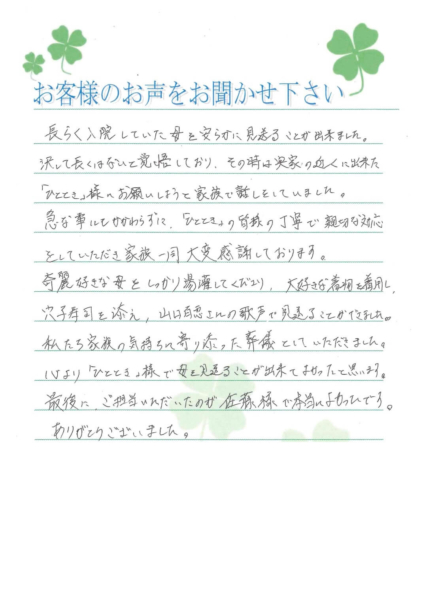 お客様のお声をお聞かせ下さい
長らく入院していた母を安らかに見送ることが出来ました。
決して長くはないと覚悟しており、その時は実家の近くに出来た
「ひととき」様へお願いしようと家族で話しをしていました。
急な事にもかかわらずに、「ひととき」の皆様の丁寧で親切な対応
をしていただき家族一同大変感謝しております。
綺麗好きな母をしっかり湯灌してくださり、大好きな着物を着用し、
穴子寿司を添え、山口百恵さんの歌声で見送ることができました。
私たち家族の気持ちに寄り添った葬儀としていただきました。
心より「ひととき」様で母を見送ることが出来てよかったと思います。
最後に、ご担当いただいたのが佐藤様で本当によかったです。
ありがとうございました。